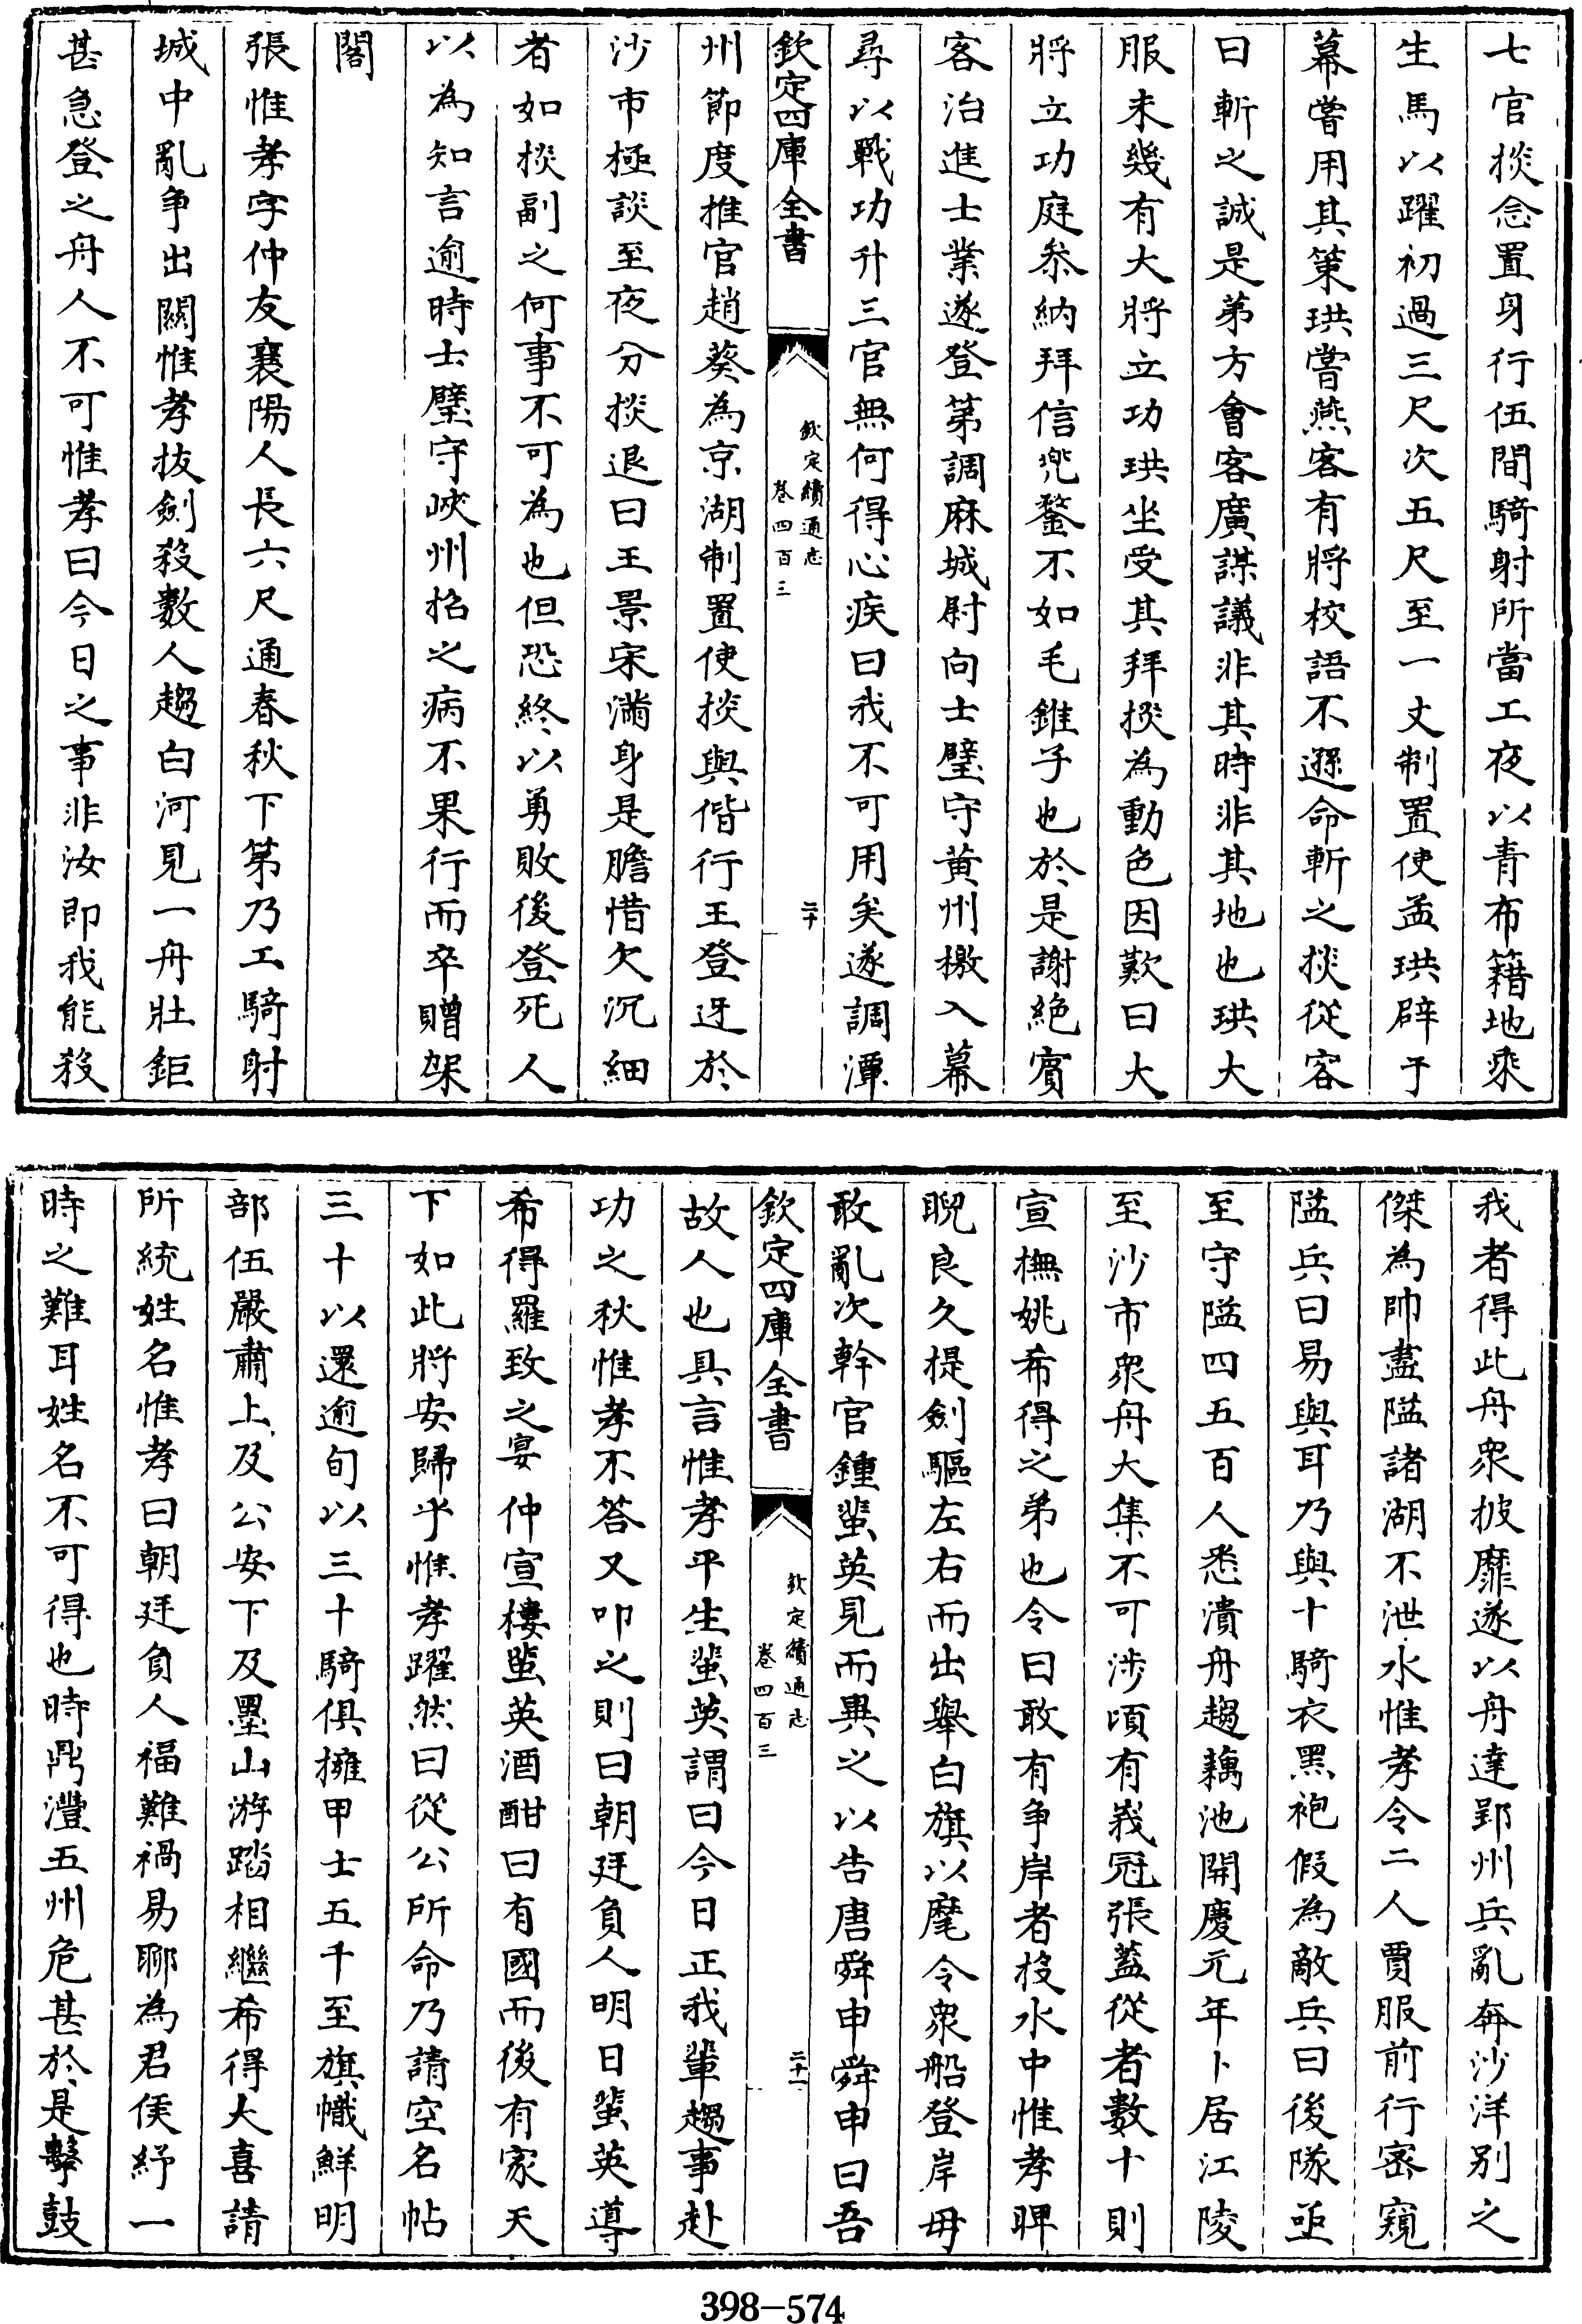 七官掞念置身行伍間騎射所當工夜以青布籍地乘
生馬以躍初過三尺次五尺至一丈制置使孟珙辟于
幕嘗用其策珙嘗燕客有將校語不遜命斬之掞從容
曰斬之誠是第方會客廣謀議非其時非其地也珙大
服未幾有大將立功珙坐受其拜掞為動色因歎曰大
將立功庭叅納拜信兜鍪不如毛錐子也於是謝絶賓
客治進士業遂登第調麻城尉向士璧守黄州檄入幕
尋以戰功升三官無何得心疾曰我不可用矣遂調潭
欽定四庫全書
欽定續通志
卷四百三
二十
州節度推官趙葵為京湖制置使掞與偕行王登迓於
沙市極談至夜分掞退曰王景宋滿身是膽惜欠沉細
者如掞副之何事不可為也但恐終以勇敗後登死人
以為知言逾時士璧守峽州招之病不果行而卒贈架
閣
張惟孝字仲友襄陽人長六尺通春秋下第乃工騎射
城中亂争出關惟孝拔劍殺數人趨白河見一舟壯鉅
甚急登之舟人不可惟孝曰今日之事非汝即我能殺
我者得此舟衆披靡遂以舟達郢州兵亂奔沙洋别之
傑為帥盡隘諸湖不泄水惟孝令二人賈服前行宻窺
隘兵曰易與耳乃與十騎衣黑袍假為敵兵曰後隊亟
至守隘四五百人悉潰舟趨藕池開慶元年卜居江陵
至沙市衆舟大集不可渉頃有峩冠張蓋從者數十則
宣撫姚希得之弟也令曰敢有争岸者投水中惟孝睥
睨良久提劍驅左右而出舉白旗以麾令衆船登岸毋
敢亂次幹官鍾蜚英見而異之以告唐舜申舜申曰吾
欽定四庫全書
欽定續通志
卷四百三
二十一
故人也具言惟孝平生蜚英謂曰今日正我輩趨事赴
功之秋惟孝不答又叩之則曰朝廷負人明日蜚英導
希得羅致之宴仲宣樓蜚英酒酣曰有國而後有家天
下如此將安歸乎惟孝躍然曰從公所命乃請空名帖
三十以還逾旬以三十騎俱擁甲士五千至旗幟鮮明
部伍嚴肅上及公安下及墨山游踏相繼希得大喜請
所統姓名惟孝曰朝廷負人福難禍易聊為君侯紓一
時之難耳姓名不可得也時鼎澧五州危甚於是擊鼓
398-574